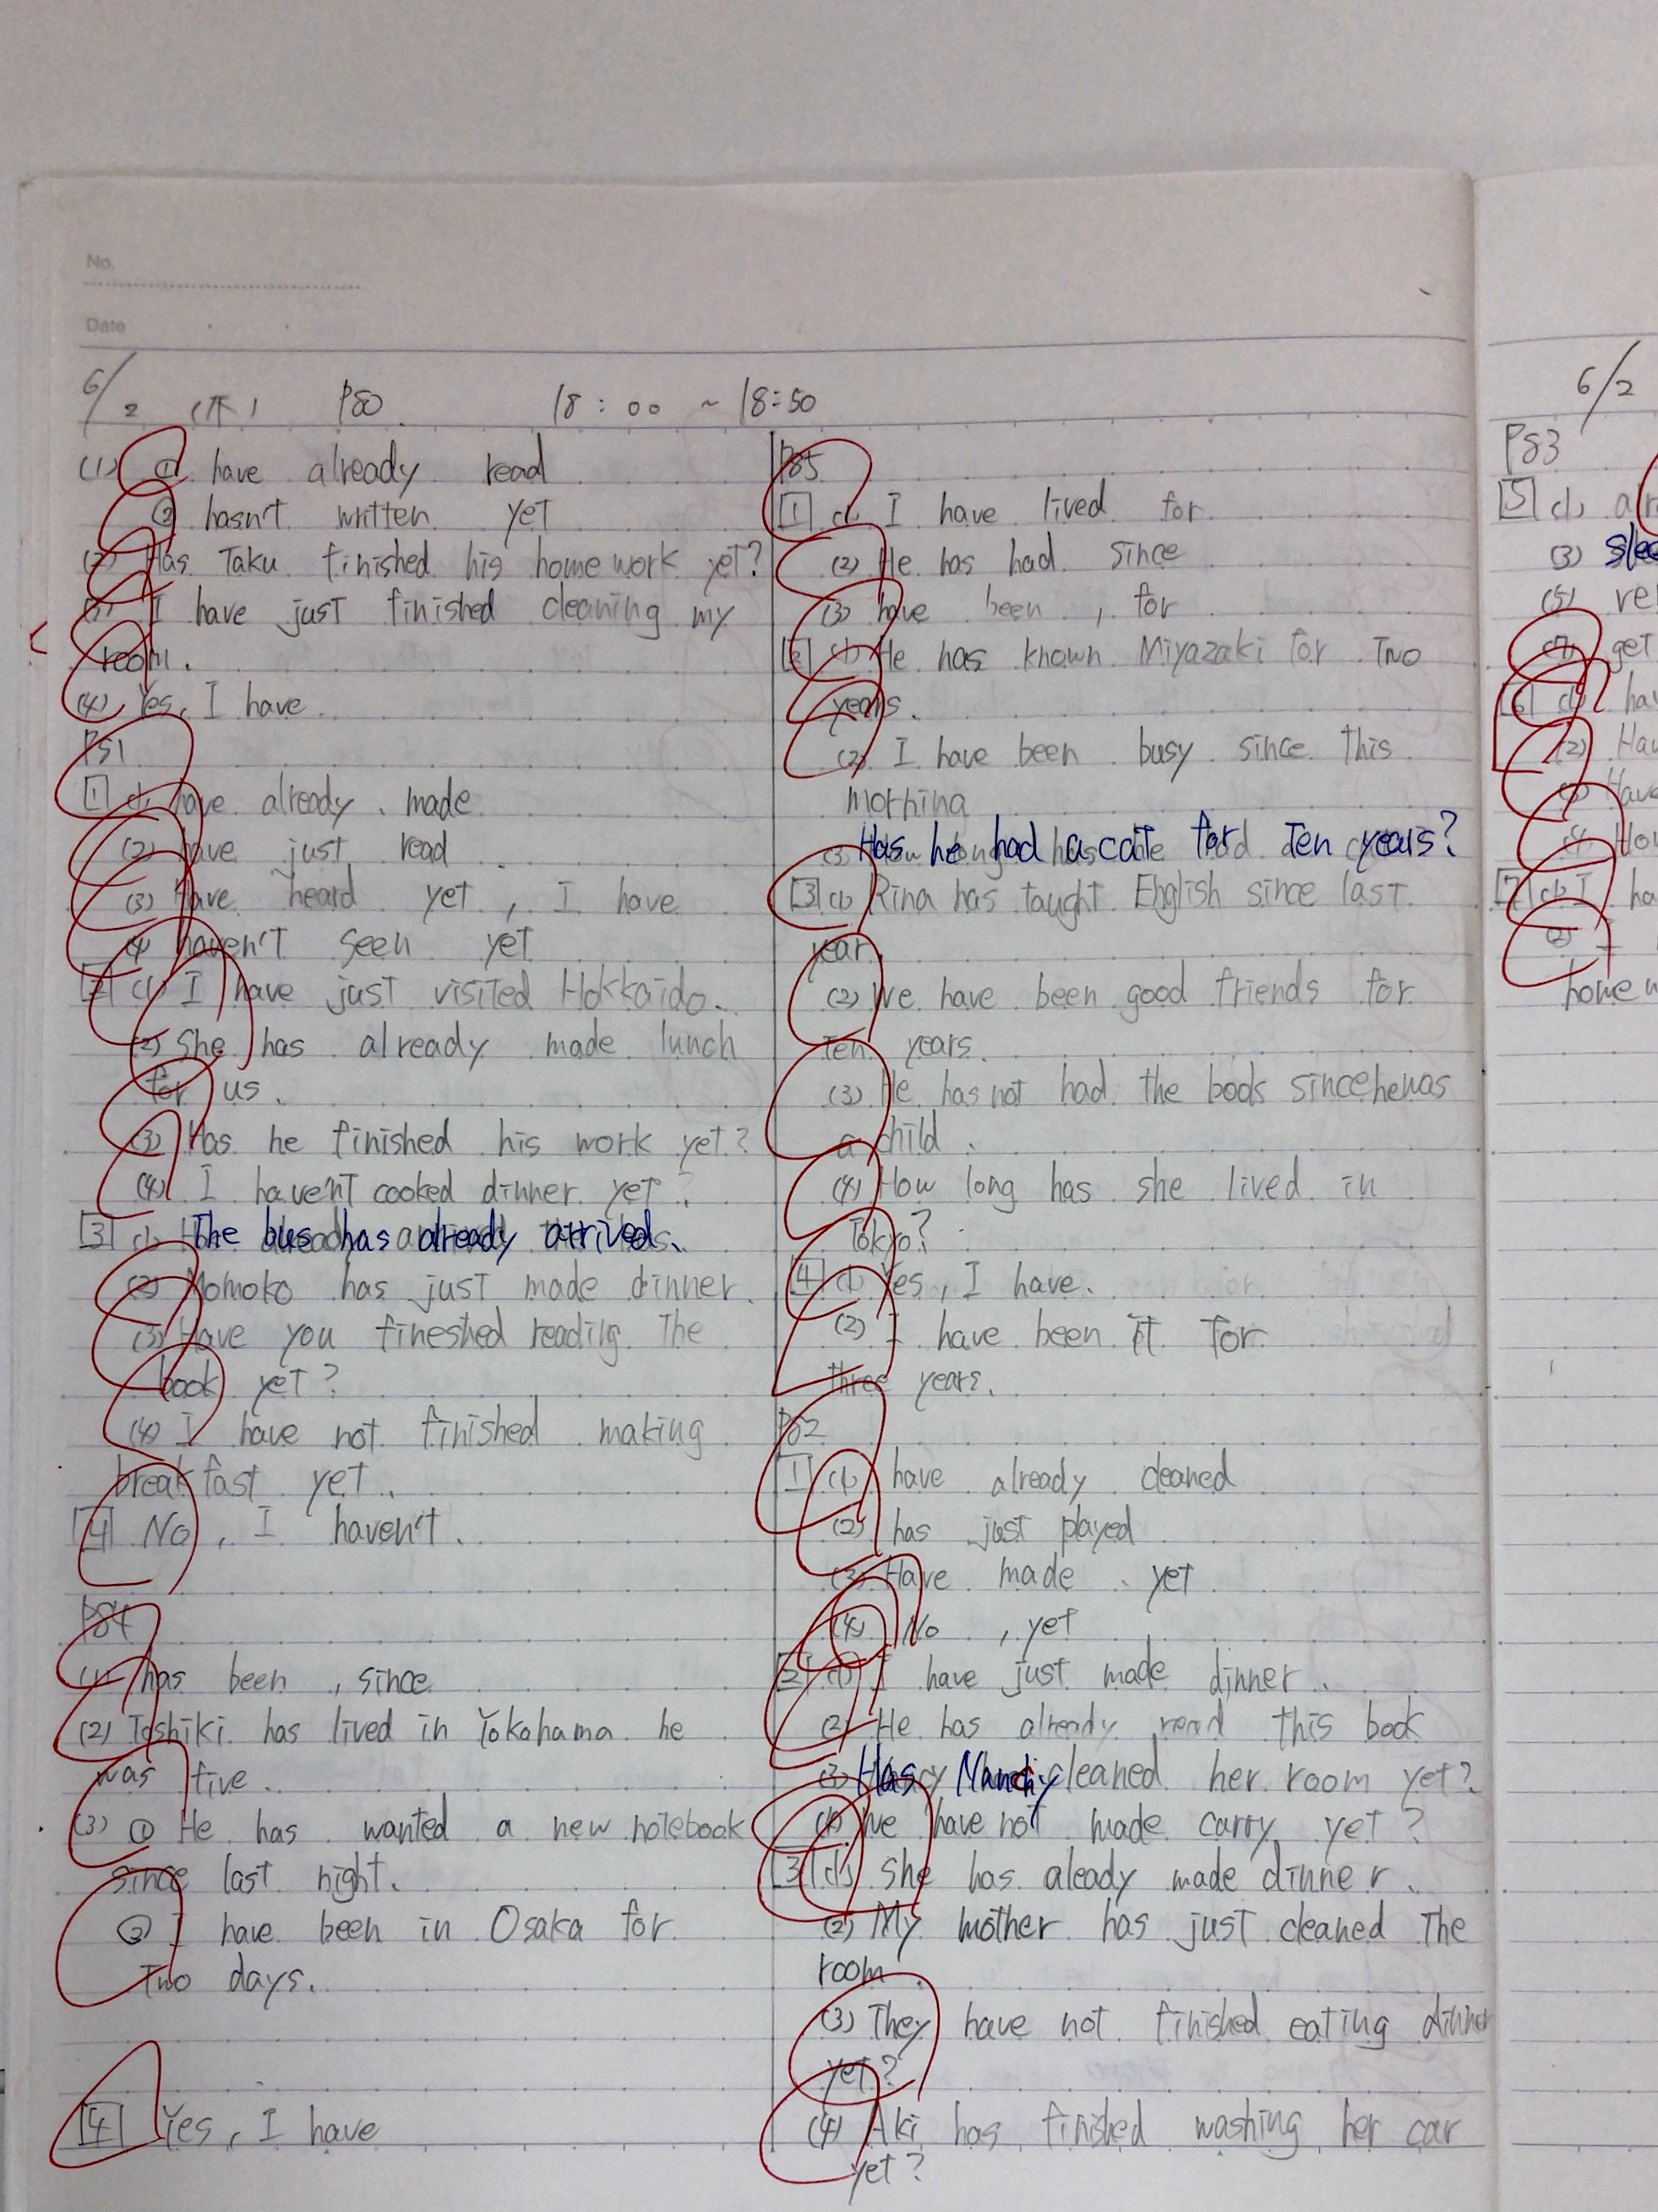 No.
Date
6/2 (木) P80 18:00 ~ 18:50
(1) ① have already read
② hasn't written yet
(2) Has Taku finished his homework yet?
(3) I have just finished cleaning my
room.
(4) Yes, I have.
P81
1 (1) have already made
(2) have just read
(3) Have heard yet, I have
(4) haven't seen yet
2 (1) I have just visited Hokkaido.
(2) She has already made lunch
for us.
(3) Has he finished his work yet?
(4) I haven't cooked dinner yet.
3 (1) The bus has already arrived.
(2) Momoko has just made dinner.
(3) Have you fineshed reading the
book yet?
(4) I have not finished making
breakfast yet.
4 No, I haven't.
P84
(1) has been, since
(2) Toshiki has lived in Yokohama he
was five.
(3) ① He has wanted a new notebook
since last night.
② I have been in Osaka for
two days.
4 Yes, I have
P85
1 (1) I have lived for
(2) He has had since
(3) have been, for
2 (1) He has known Miyazaki for two
years.
(2) I have been busy since this
morning
(3) Has he had a cat for ten years?
3 (1) Rina has taught English since last
year.
(2) We have been good friends for
ten years.
(3) He has not had the book since he was
a child.
(4) How long has she lived in
Tokyo?
4 (1) Yes, I have.
(2) I have been it for
three years.
P82
1 (1) have already cleaned
(2) has just played
(3) Have made yet
(4) No, yet
2 (1) I have just made dinner.
(2) He has already read this book
(3) Has Nancy cleaned her room yet?
(4) We have not made carry yet?
3 (1) She has aleady made dinner.
(2) My mother has just cleaned the
room.
(3) They have not finished eating dinner
yet?
(4) Aki has finished washing her car
yet?
6/2
P83
5 (1)
(3)
(5)
(7) get
6 (1)
(2)
(3) Have
(4)
7 (1) I
(2) I